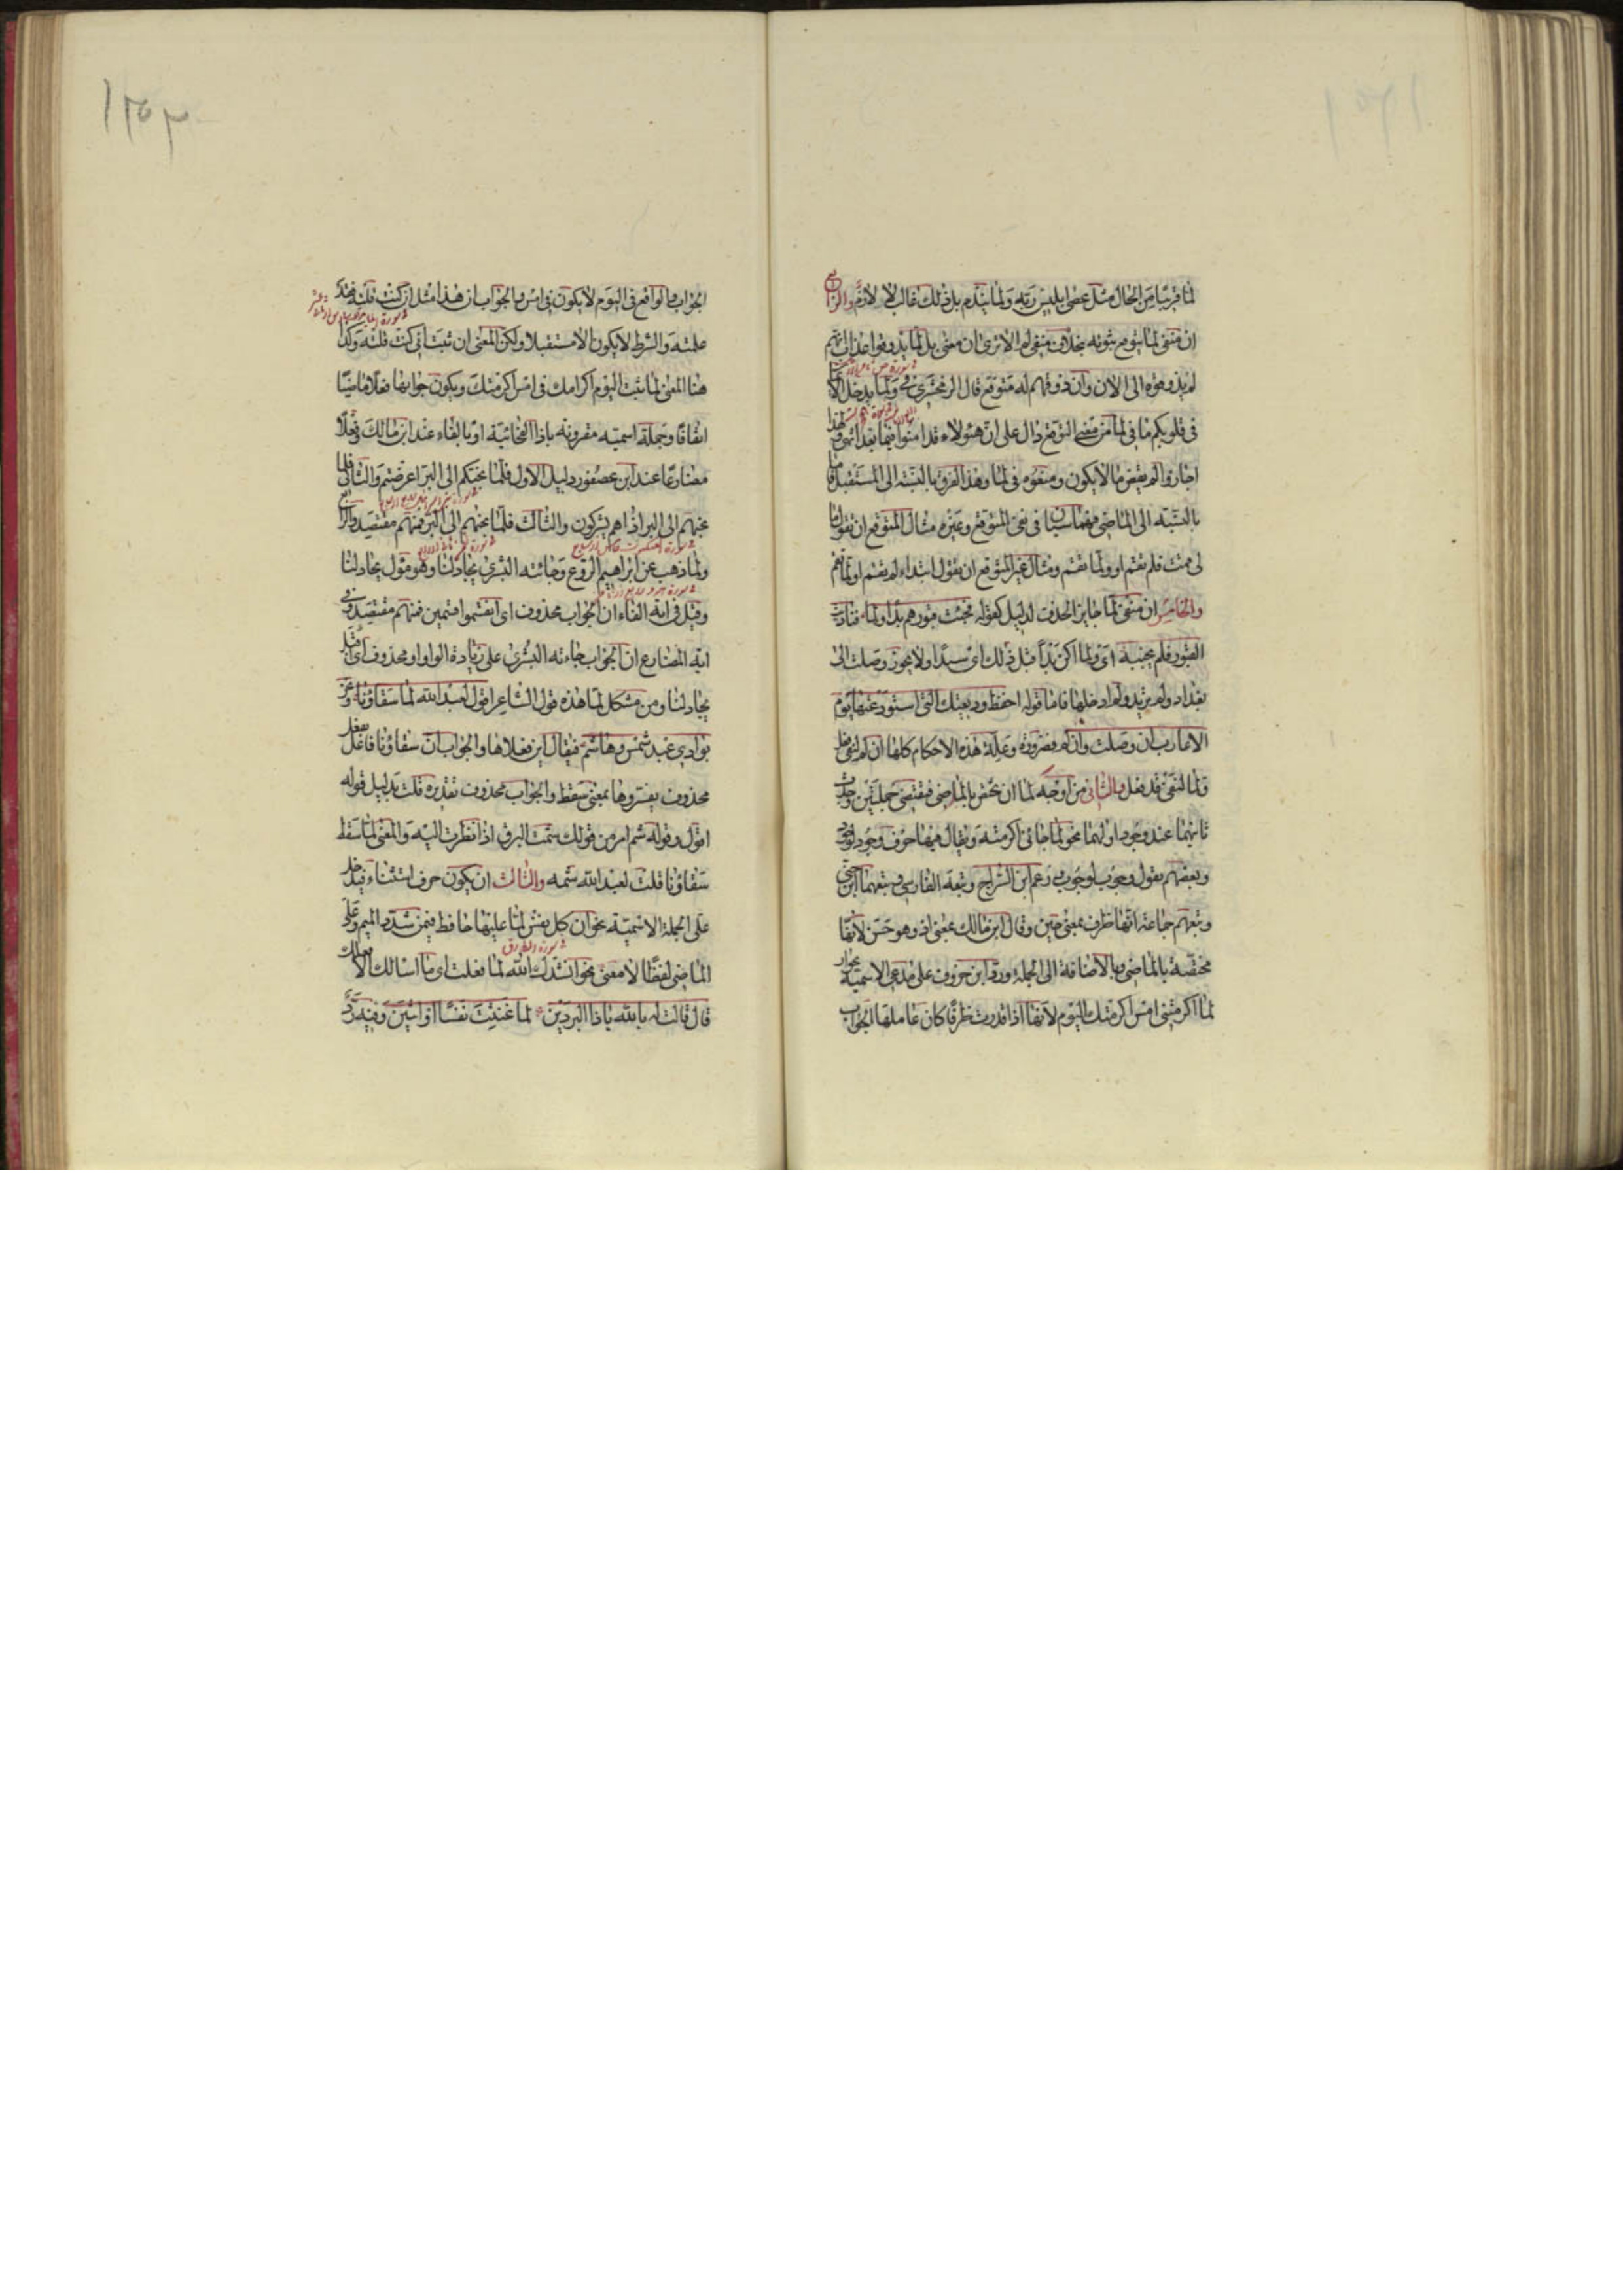 لما قريبا من الحال مثل عصى ابليس ربه ولما يندم بل ذلك غالب لا لازم والرابع
ان منفى لما متوقع ثبوته بخلاف منفى لم الا ترى ان معنى بل لما يذوقوا عذاب انهم
لم يذوقوه الى الان وان ذوقهم له متوقع قال الزمخشرى فى ولما يدخل الايمان
فى قلوبكم ما فى لما من معنى التوقع دال على ان هؤلاء قد امنوا فيما بعد انتهى ولهذا
اجازوا لم يقض ما لا يكون ومنعوه فى لما وهذا الفرق بالنسبة الى المستقبل فاما
بالنسبة الى الماضى فهما سيان فى نفى المتوقع وغيره مثال المتوقع ان تقول ما
لى قمت فلم تقم او ولما تقم ومثال غير المتوقع ان تقول ابتداء لم يقم او لما يقم
والخامس ان منفى لما جايز الحذف لدليل كقوله فجئت قبورهم بدأ ولما فناديت
القبور فلم يجبنه اى ولما اكن بدأ قبل ذلك اى سيدا ولا يجوز وصلت الى
بغداد ولم تريد ولم ادخلها فاما قوله احفظ وديعتك التى استودعتها يوم
الاعازب ان وصلت وان لم فضرورة وعلة هذه الاحكام كلها ان لم لنفى فعل
ولما لنفى قد فعل والثانى من اوجه لما ان تختص بالماضى فتقتضى جملتين وجدت
ثانيتهما عند وجود اوليهما نحو لما جائنى اكرمته ويقال فيها حرف وجود لوجود
وبعضهم يقول وجوب لوجوب وزعم ابن السراج وتبعه الفارسى وتبعهما ابن جنى
وتبعهم جماعة انها ظرف بمعنى حين وقال ابن مالك بمعنى اذ وهو حسن لانها
مختصة بالماضى وبالاضافة الى الجملة ورد ابن خروف على مدعى الاسمية بجواز
لما اكرمتنى امس اكرمتك اليوم لانها اذا قدرت ظرفا كان عاملها الجواب
الجواب والواقع فى اليوم لا يكون فى امس والجواب ان هذا مثل ان كنت قلته فقد
علمته والشرط لا يكون الا مستقبلا ولكن المعنى ان ثبت انى كنت قلته وكذا
هنا المعنى لما ثبت اليوم اكرامك فى امس اكرمتك ويكون جوابها فعلا ماضيا
اتفاقا وجملة اسمية مقرونة باذا الفجائية او بالفاء عند ابن مالك وفعلا
مضارعا عند ابن عصفور دليل الاول فلما نجيكم الى البر اعرضتم والثانى فلما
نجيهم الى البر اذا هم يشركون والثالث فلما نجيهم الى البر فمنهم مقتصد والرابع
ولما ذهب عن ابراهيم الروع وجائته البشرى يجادلنا وهو مؤول بجادلنا
وقيل فى اية الفاء ان الجواب محذوف اى انقسموا قسمين فمنهم مقتصد وفى
اية المضارع ان الجواب جاءته البشرى على زيادة الواو او محذوف اى اقبل
يجادلنا ومن مشكل لما هذه قول الشاعر اقول لعبد الله لما سقاؤنا ونحن
بوادى عبد شمس وهاشم فيقال اين فعلاها والجواب ان سقاؤنا فاعل بفعل
محذوف يفسره وها بمعنى سقط والجواب محذوف تقديره قلت بدليل قوله
اقول وقوله شم امر من قولك شمت البرق اذا نظرت اليه والمعنى لما سقط
سقاؤنا قلت لعبد الله شمه والثالث ان يكون حرف استثناء فيدخل
على الجملة الاسمية نحو ان كل نفس لما عليها حافظ فيمن شدد الميم وعلى
الماضى لفظا لا معنى نحو انشدك الله لما فعلت اى ما اسالك الا فعلك
قال قالت له بالله ياذا البردين لما غنثت نفسا او اثنين وفيه رد